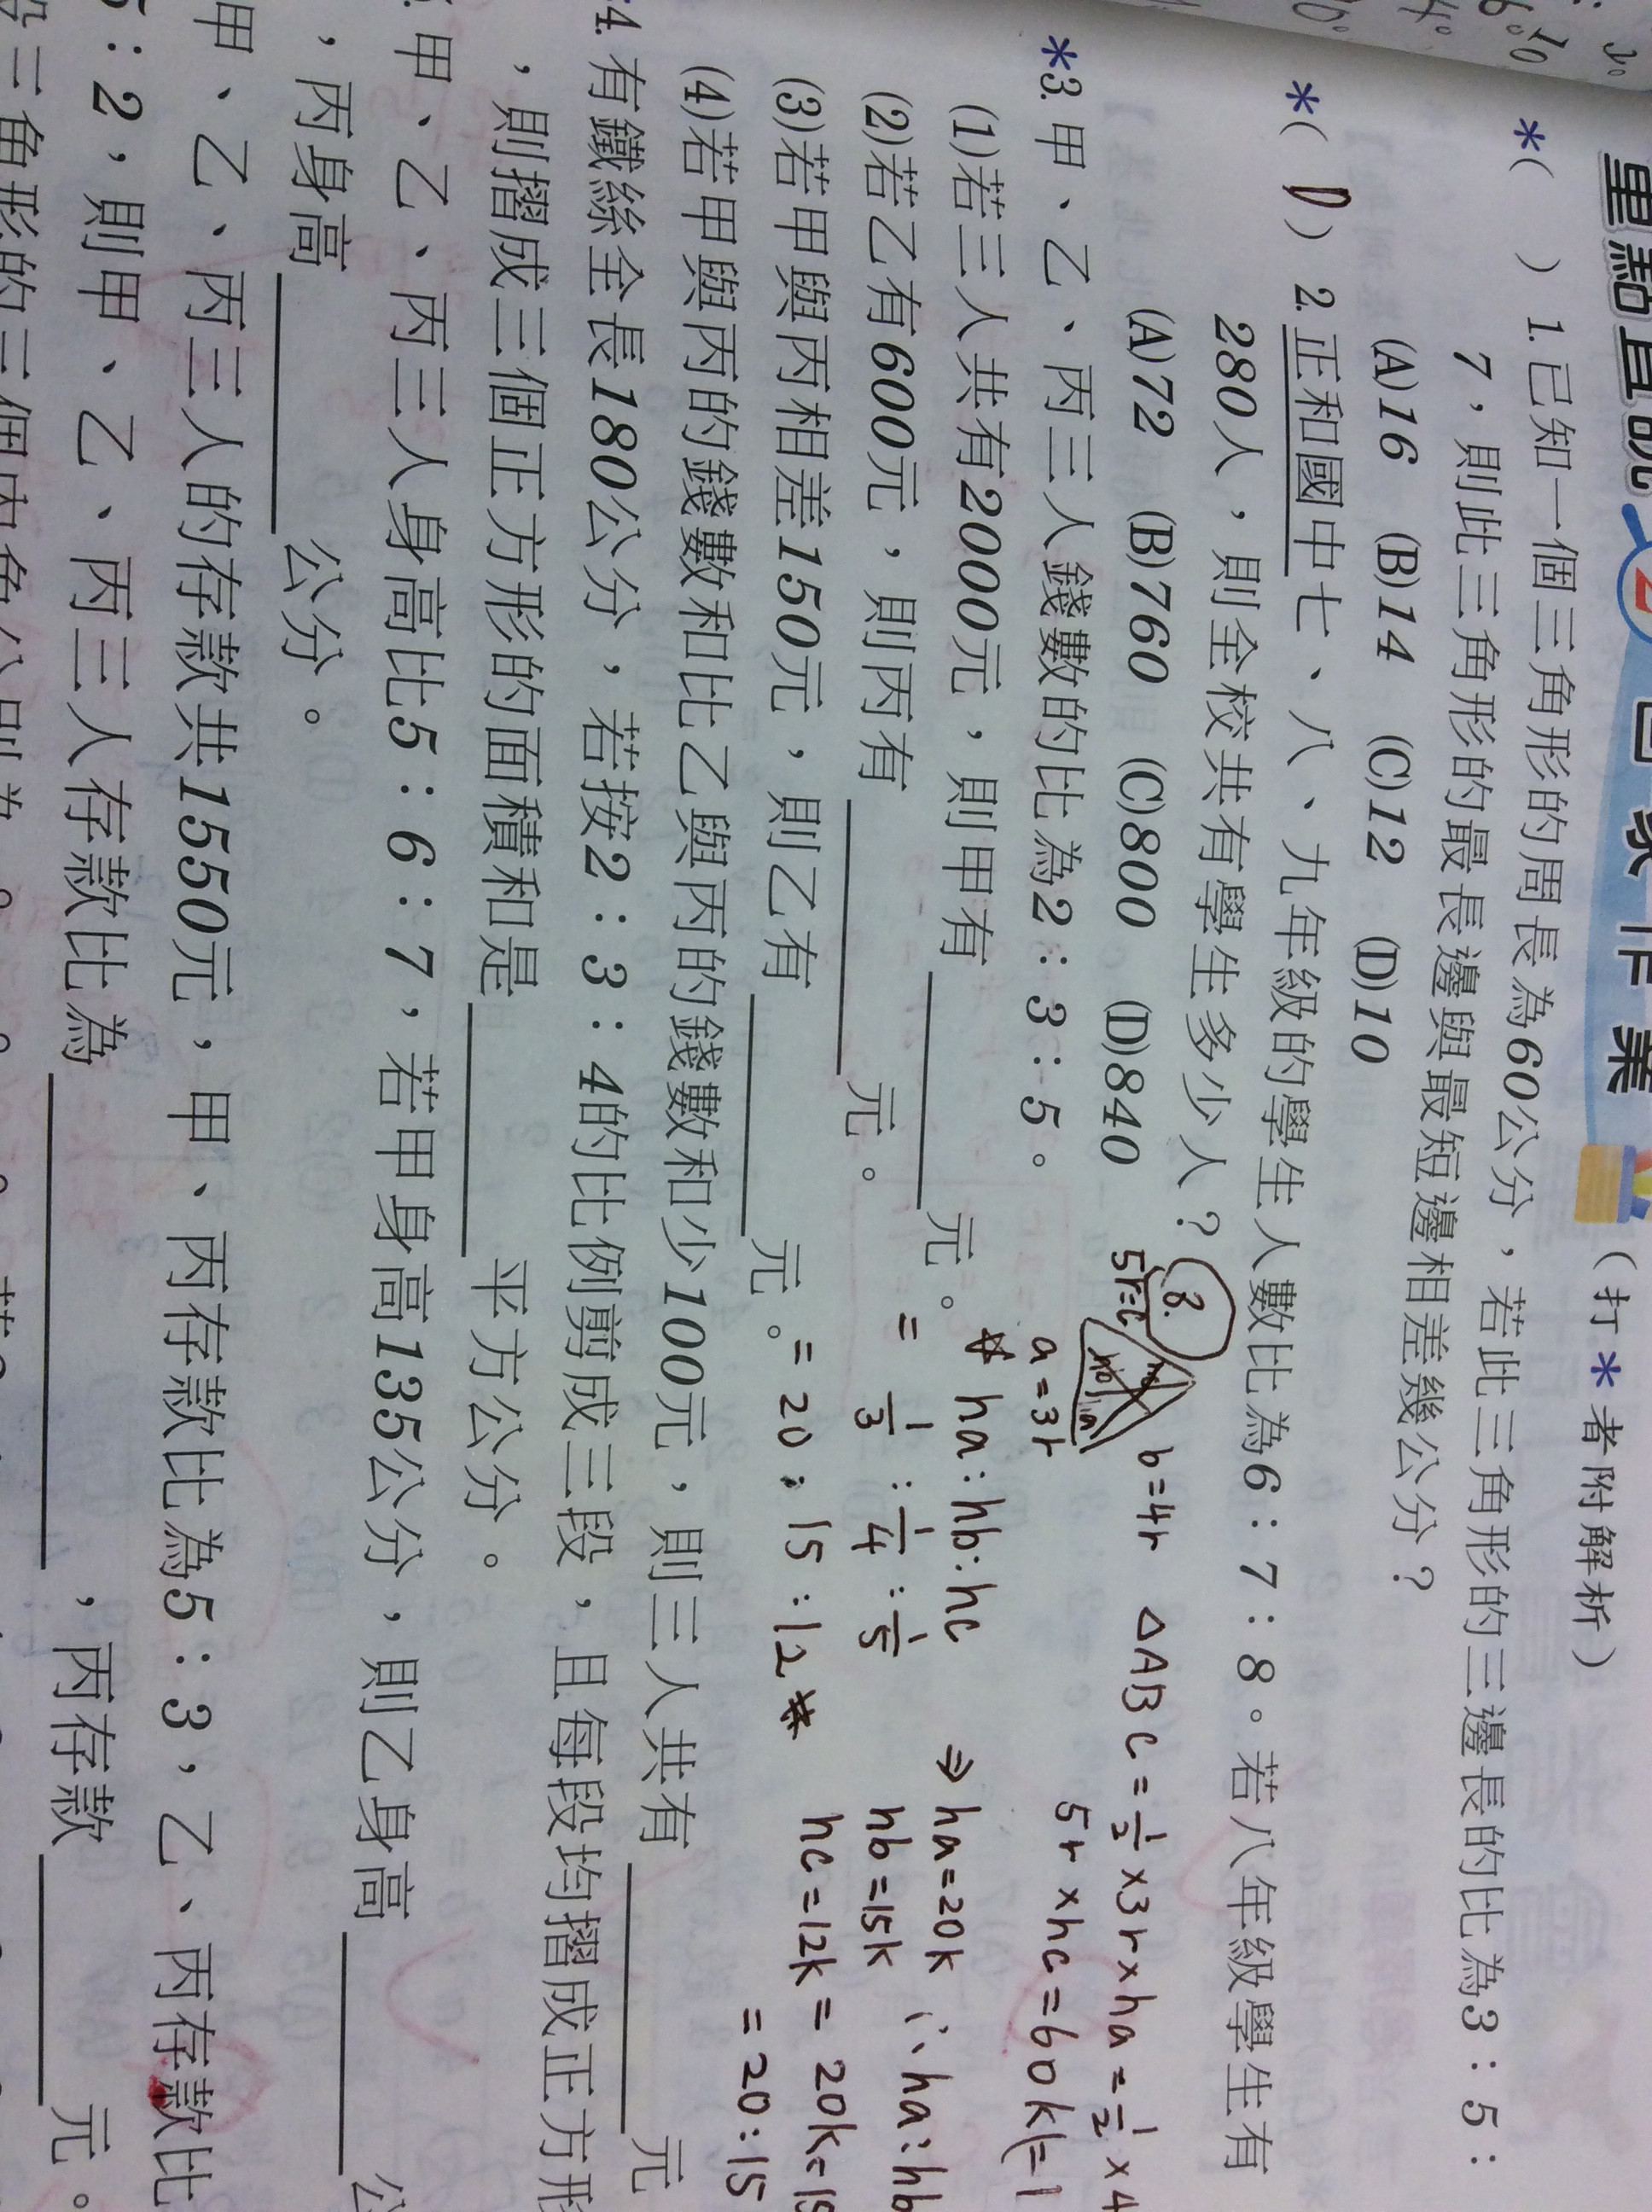 重點直說 2 回家作業 (打*者附解析)
*( ) 1.已知一個三角形的周長為60公分，若此三角形的三邊長的比為3：5：
7，則此三角形的最長邊與最短邊相差幾公分？
(A)16 (B)14 (C)12 (D)10
*( D ) 2.正和國中七、八、九年級的學生人數比為6：7：8。若八年級學生有
280人，則全校共有學生多少人？
(A)72 (B)760 (C)800 (D)840
*3.甲、乙、丙三人錢數的比為2：3：5。
(1)若三人共有2000元，則甲有 元。
(2)若乙有600元，則丙有 元。
(3)若甲與丙相差150元，則乙有 元。
(4)若甲與丙的錢數和比乙與丙的錢數和少100元，則三人共有 元
4.有鐵絲全長180公分，若按2：3：4的比例剪成三段，且每段均摺成正方形
，則摺成三個正方形的面積和是 平方公分。
甲、乙、丙三人身高比5：6：7，若甲身高135公分，則乙身高 公
，丙身高 公分。
甲、乙、丙三人的存款共1550元，甲、丙存款比為5：3，乙、丙存款比
：2，則甲、乙、丙三人存款比為 ，丙存款 元。
8.
5r=c
b=4r
a=3r
△ABC=1/2×3r×ha=1/2×4
5r×hc=60k(=1
ha:hb:hc
=1/3:1/4:1/5
=20:15:12
⇒ha=20k
hb=15k
hc=12k
∴ha:hb
=20k:15
=20:15